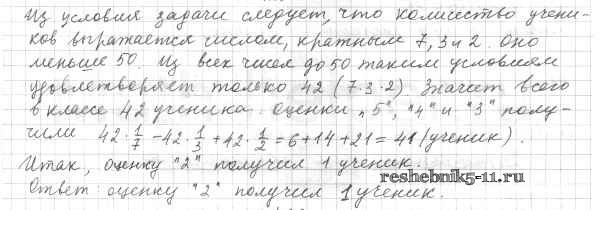 Из условия задачи следует, что количество учени-
ков выражается числом, кратным 7, 3 и 2. Оно
меньше 50. Из всех чисел до 50 таким условиям
удовлетворяет только 42 (7·3·2). Значит всего
в классе 42 ученика. Оценки „5", "4" и "3" полу-
чили 42·1/7-42·1/3+42·1/2=6+14+21=41 (ученик).
Итак, оценку "2" получил 1 ученик.
reshebnik5-11.ru
Ответ оценку "2" получил 1 ученик.